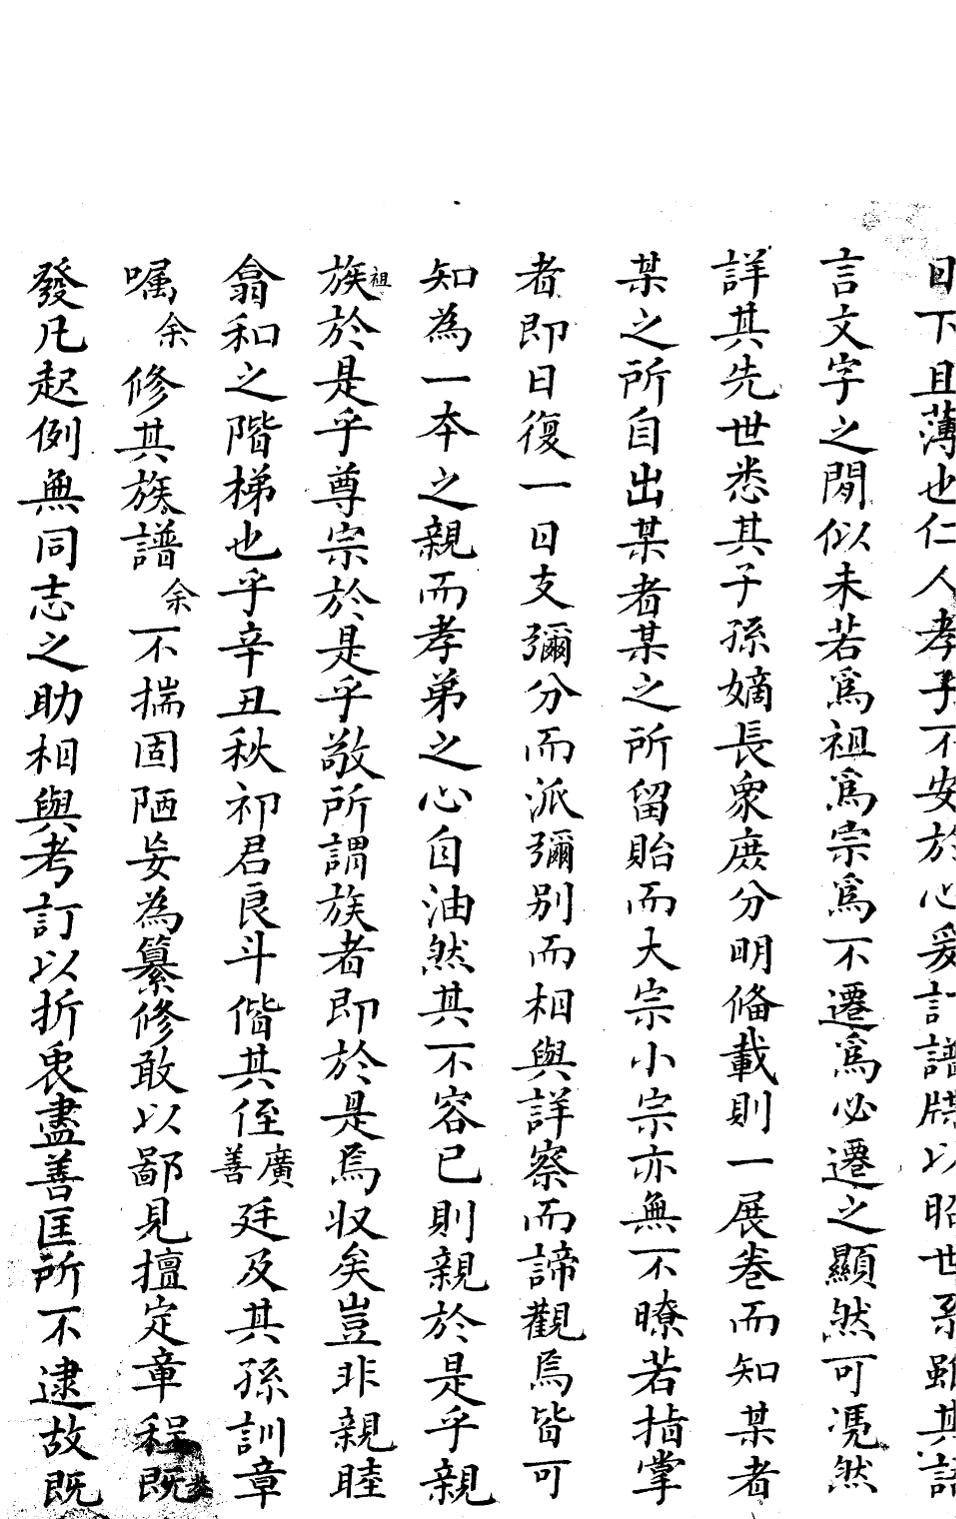 日下且薄也仁人孝子不安於心爰訂譜牒以昭世系雖其語
言文字之間似未若爲祖爲宗爲不遷爲必遷之顯然可凴然
詳其先世悉其子孫嫡長衆庶分明俻載則一展巻而知某者
某之所自出某者某之所留貽而大宗小宗亦無不瞭若指掌
者即日復一日支彌分而派彌别而相與詳察而諦觀焉皆可
知為一本之親而孝弟之心自油然其不容已則親於是乎親
族祖於是乎尊宗於是乎敬所謂族者即於是焉収矣豈非親睦
翕和之階梯也乎辛丑秋祁君良斗偕其侄廣善廷及其孫訓章
嘱余修其族譜余不揣固陋妄為纂修敢以鄙見擅定章程既
發凡起例無同志之助相與考訂以折衷盡善匡所不逮故既